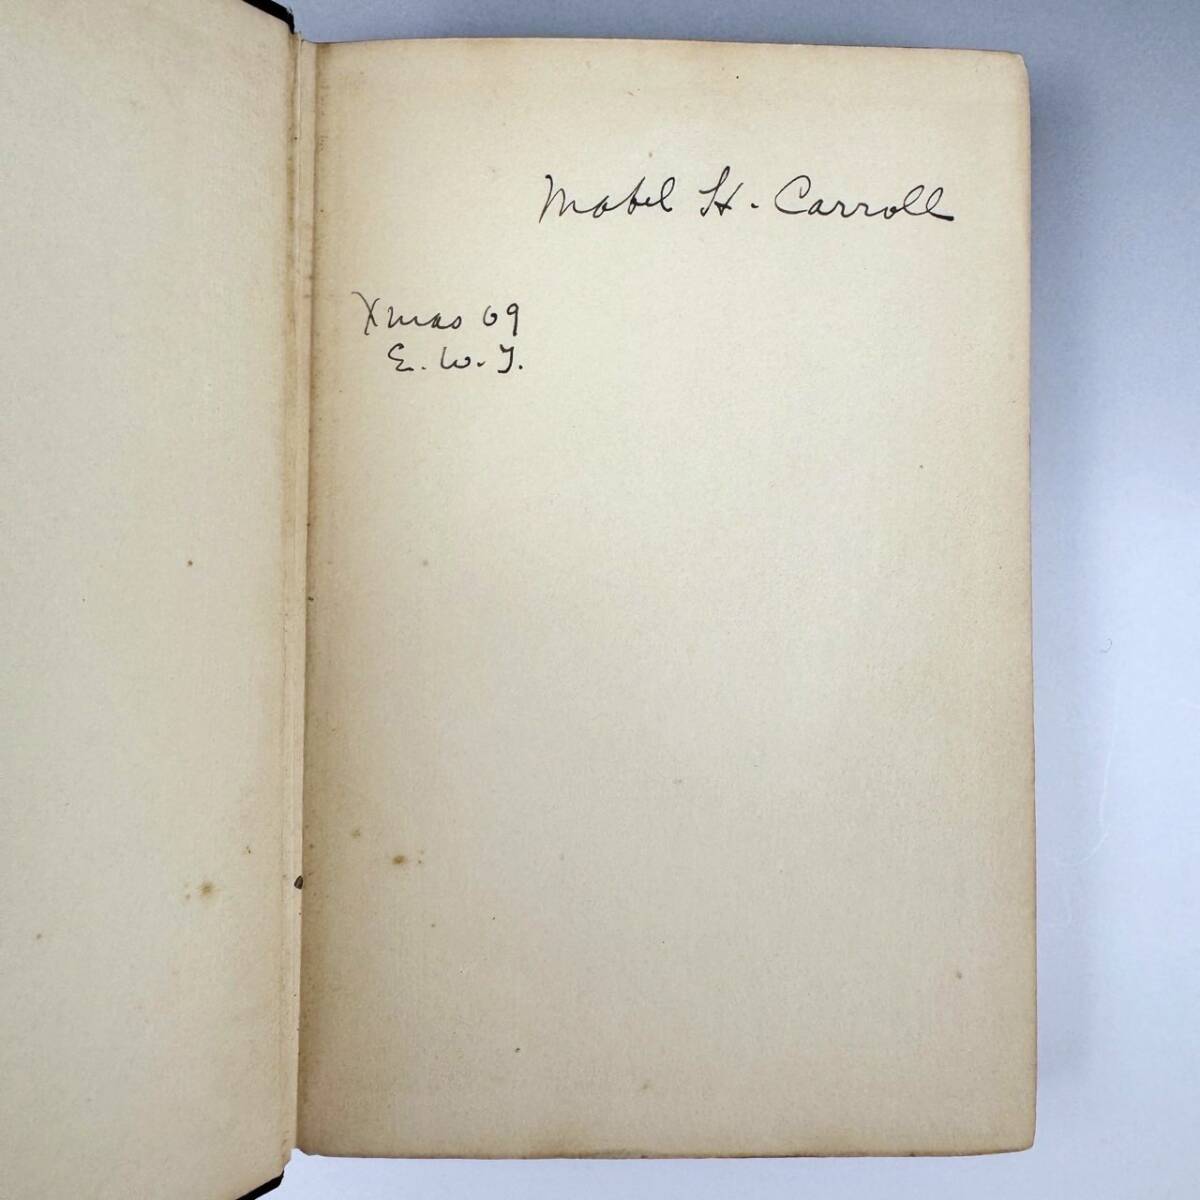 Mabel H. Carroll
Xmas 09
E. W. T.